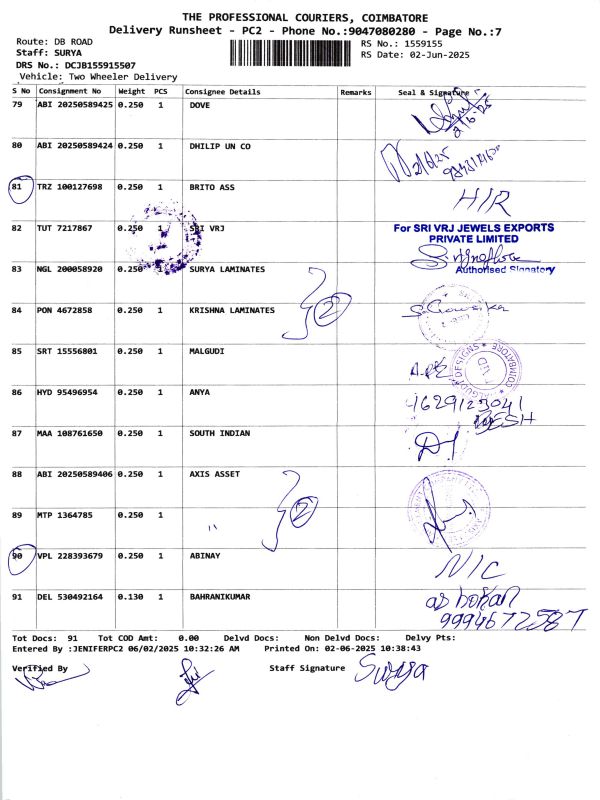 THE PROFESSIONAL COURIERS, COIMBATORE
Delivery Runsheet - PC2 - Phone No.:9047080280 - Page No.:7
Route: DB ROAD
Staff: SURYA
DRS No.: DCJB155915507
Vehicle: Two Wheeler Delivery
RS No.: 1559155
RS Date: 02-Jun-2025
S No Consignment No Weight PCS Consignee Details Remarks Seal & Signature
79 ABI 20250589425 0.250 1 DOVE
80 ABI 20250589424 0.250 1 DHILIP UN CO
81 TRZ 100127698 0.250 1 BRITO ASS H/R
82 TUT 7217867 0.250 1 SRI VRJ
For SRI VRJ JEWELS EXPORTS
PRIVATE LIMITED
Authorised Signatory
83 NGL 200058920 0.250 1 SURYA LAMINATES
2
84 PON 4672858 0.250 1 KRISHNA LAMINATES
85 SRT 15556801 0.250 1 MALGUDI
86 HYD 95496954 0.250 1 ANYA 9629123041
87 MAA 108761650 0.250 1 SOUTH INDIAN
88 ABI 20250589406 0.250 1 AXIS ASSET
2
89 MTP 1364785 0.250 1 "
90 VPL 228393679 0.250 1 ABINAY N/C
91 DEL 530492164 0.130 1 BAHRANIKUMAR ashokan
9994672587
Tot Docs: 91 Tot COD Amt: 0.00 Delvd Docs: Non Delvd Docs: Delvy Pts:
Entered By :JENIFERPC2 06/02/2025 10:32:26 AM Printed On: 02-06-2025 10:38:43
Verified By Staff Signature Surya